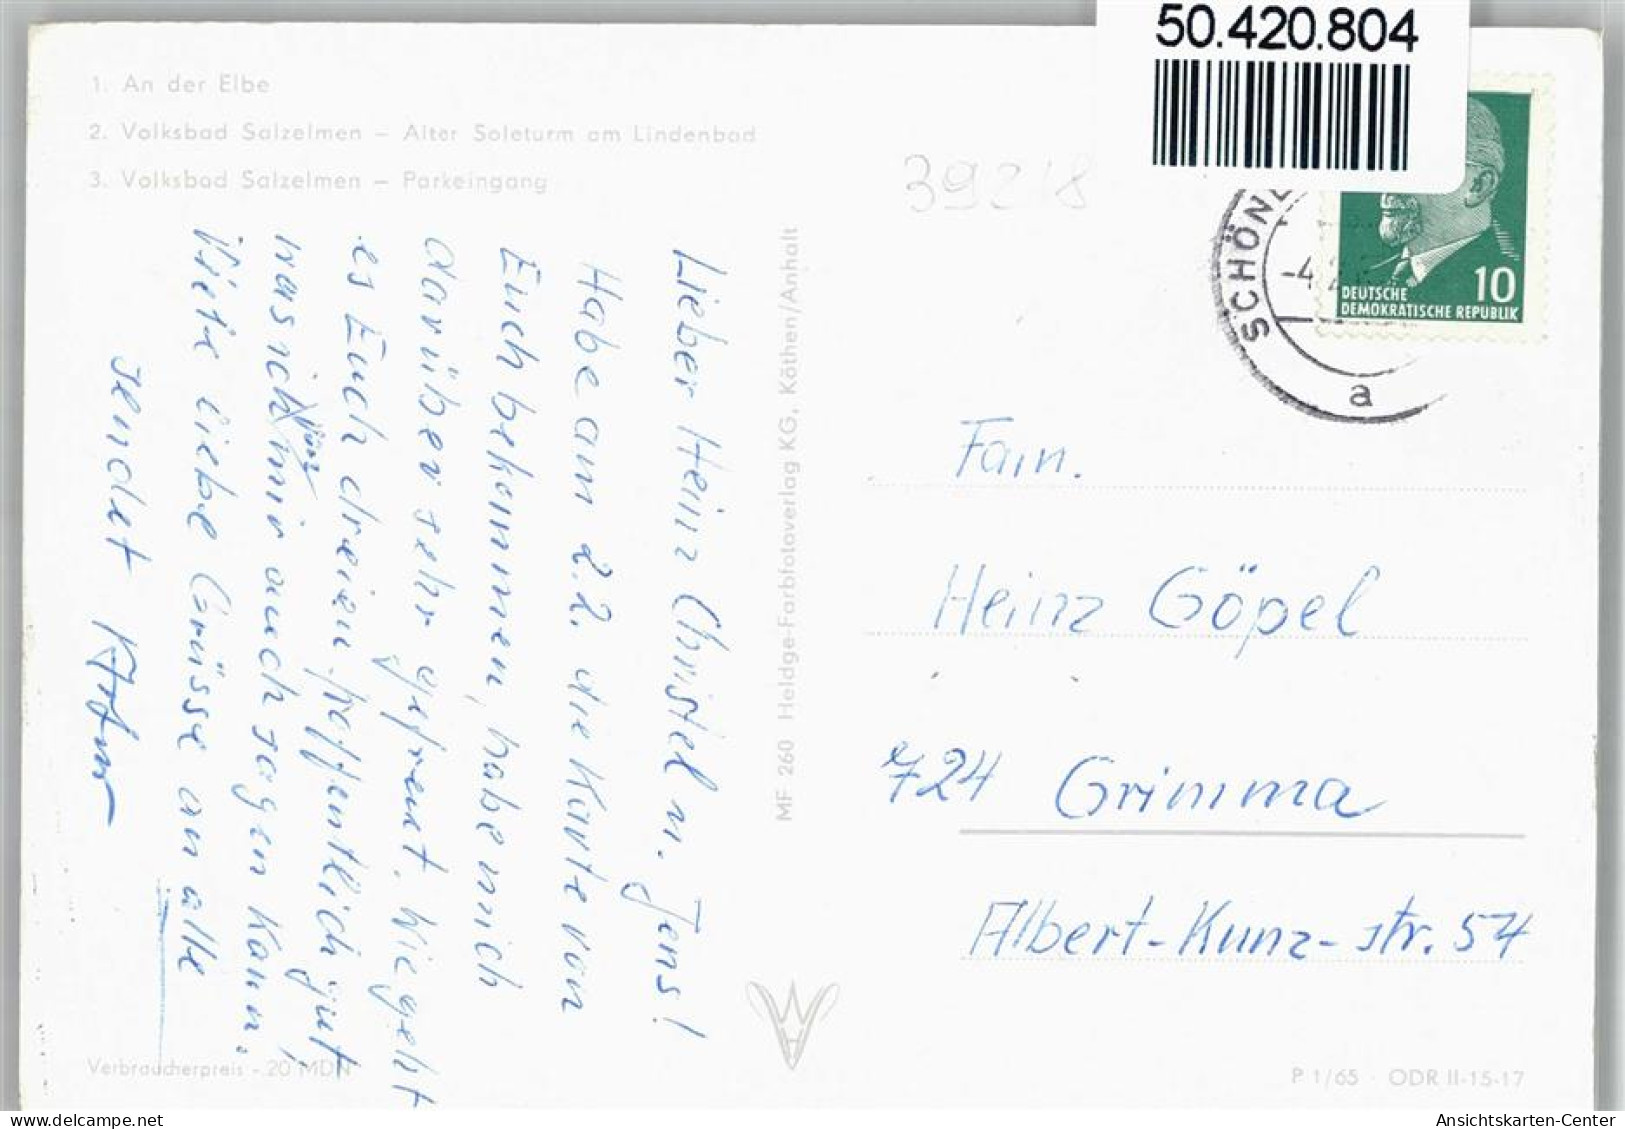 50.420.804
1. An der Elbe
2. Volksbad Salzelmen – Alter Soleturm am Lindenbad
3. Volksbad Salzelmen – Parkeingang
39218
SCHÖNE
-4.2.
a
10
DEUTSCHE
DEMOKRATISCHE REPUBLIK
Lieber Heinz Christel u. Jens!
Habe am 2.2. die Karte von
Euch bekommen, habe mich
darüber sehr gefreut. Wie geht
es Euch dreien, hoffentlich gut,
was ich von mir auch sagen kann.
Viele liebe Grüsse an alle
sendet
MF 260 Heldge-Farbfotoverlag KG, Köthen/Anhalt
Fam.
Heinz Göpel
724 Grimma
Albert-Kunz-Str. 54
Verbraucherpreis -.20 MDN
P 1/65 · ODR II-15-17
Ansichtskarten-Center